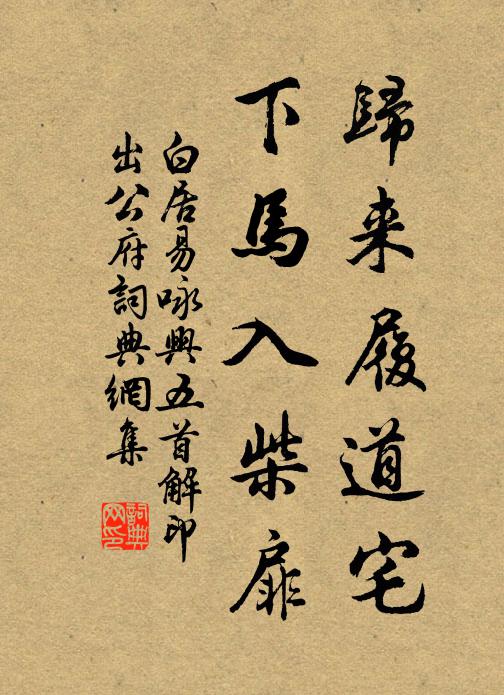 歸来履道宅
下馬入柴扉
白居易咏興五首解印
出公府詞典網集
詞典
网印